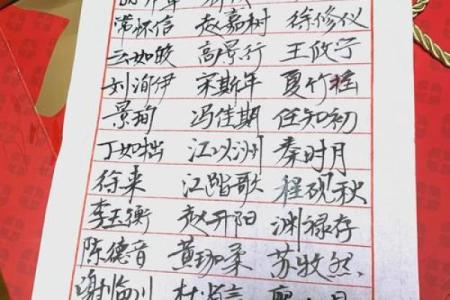 常怀信 赵嘉树 徐修仪
云如皎 高景行 王攸宁
刘洵伊 宋斯年 夏竹桯
景珣 冯佳期 任知初
丁如拙 江以洲 秦时月
徐来 江踏歌 程砚秋
李玉衡 赵开阳 渊禄存
陈德音 黄珈柔 苏牧然
谢临川